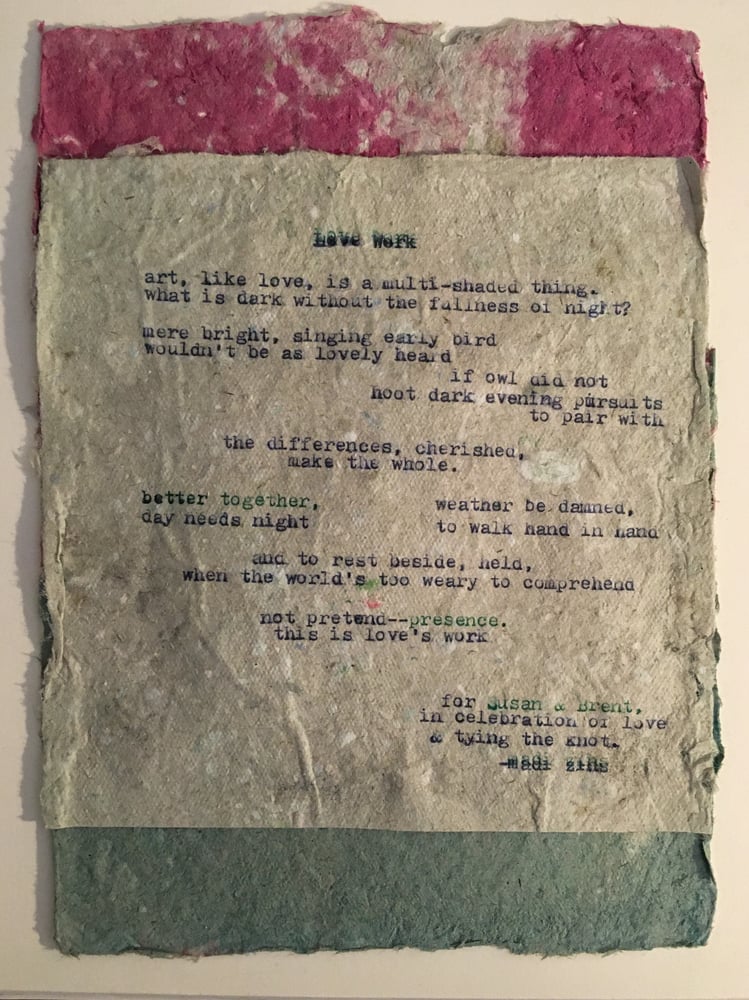 Love Work
art, like love, is a multi-shaded thing.
what is dark without the fullness of night?
mere bright, singing early bird
wouldn't be as lovely heard
if owl did not
hoot dark evening pursuits
to pair with
the differences, cherished,
make the whole.
better together,
day needs night
weather be damned,
to walk hand in hand
and to rest beside, held,
when the world's too weary to comprehend
not pretend--presence.
this is love's work
for Susan & Brent,
in celebration of love
& tying the knot.
-madi